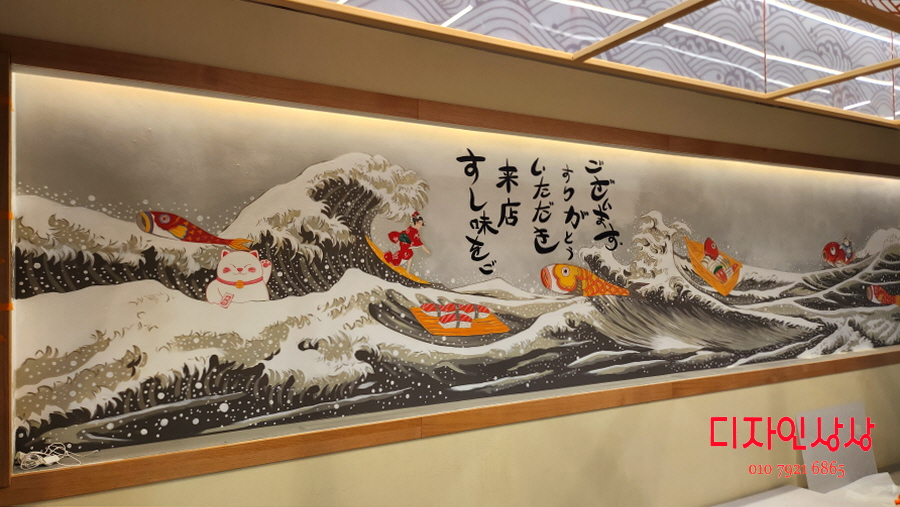 すし味をご
来店
いただき
ありがとう
ございます
디자인상상
010 7921 6865